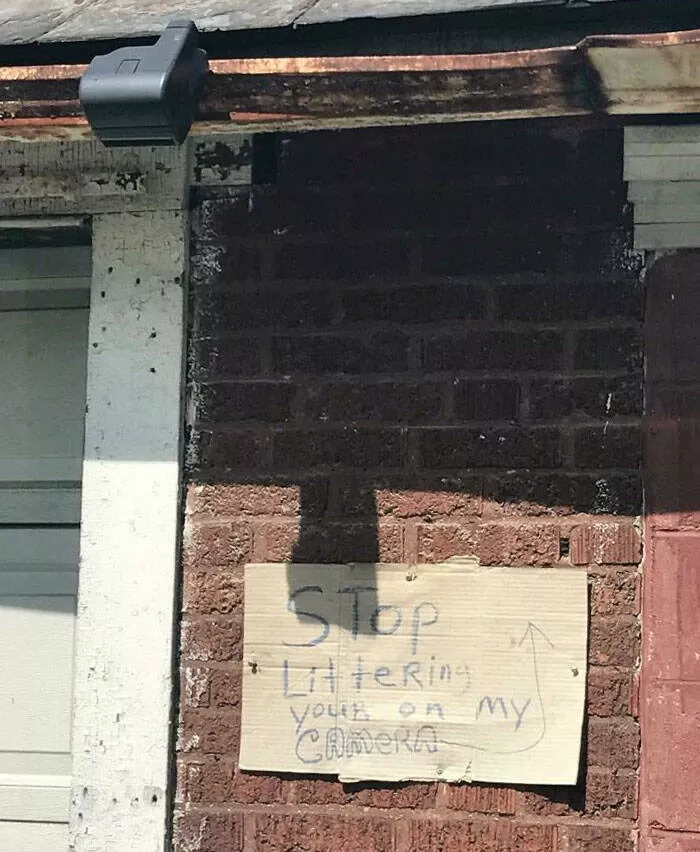 STop
LitteRing
youR on My
CAMeRA